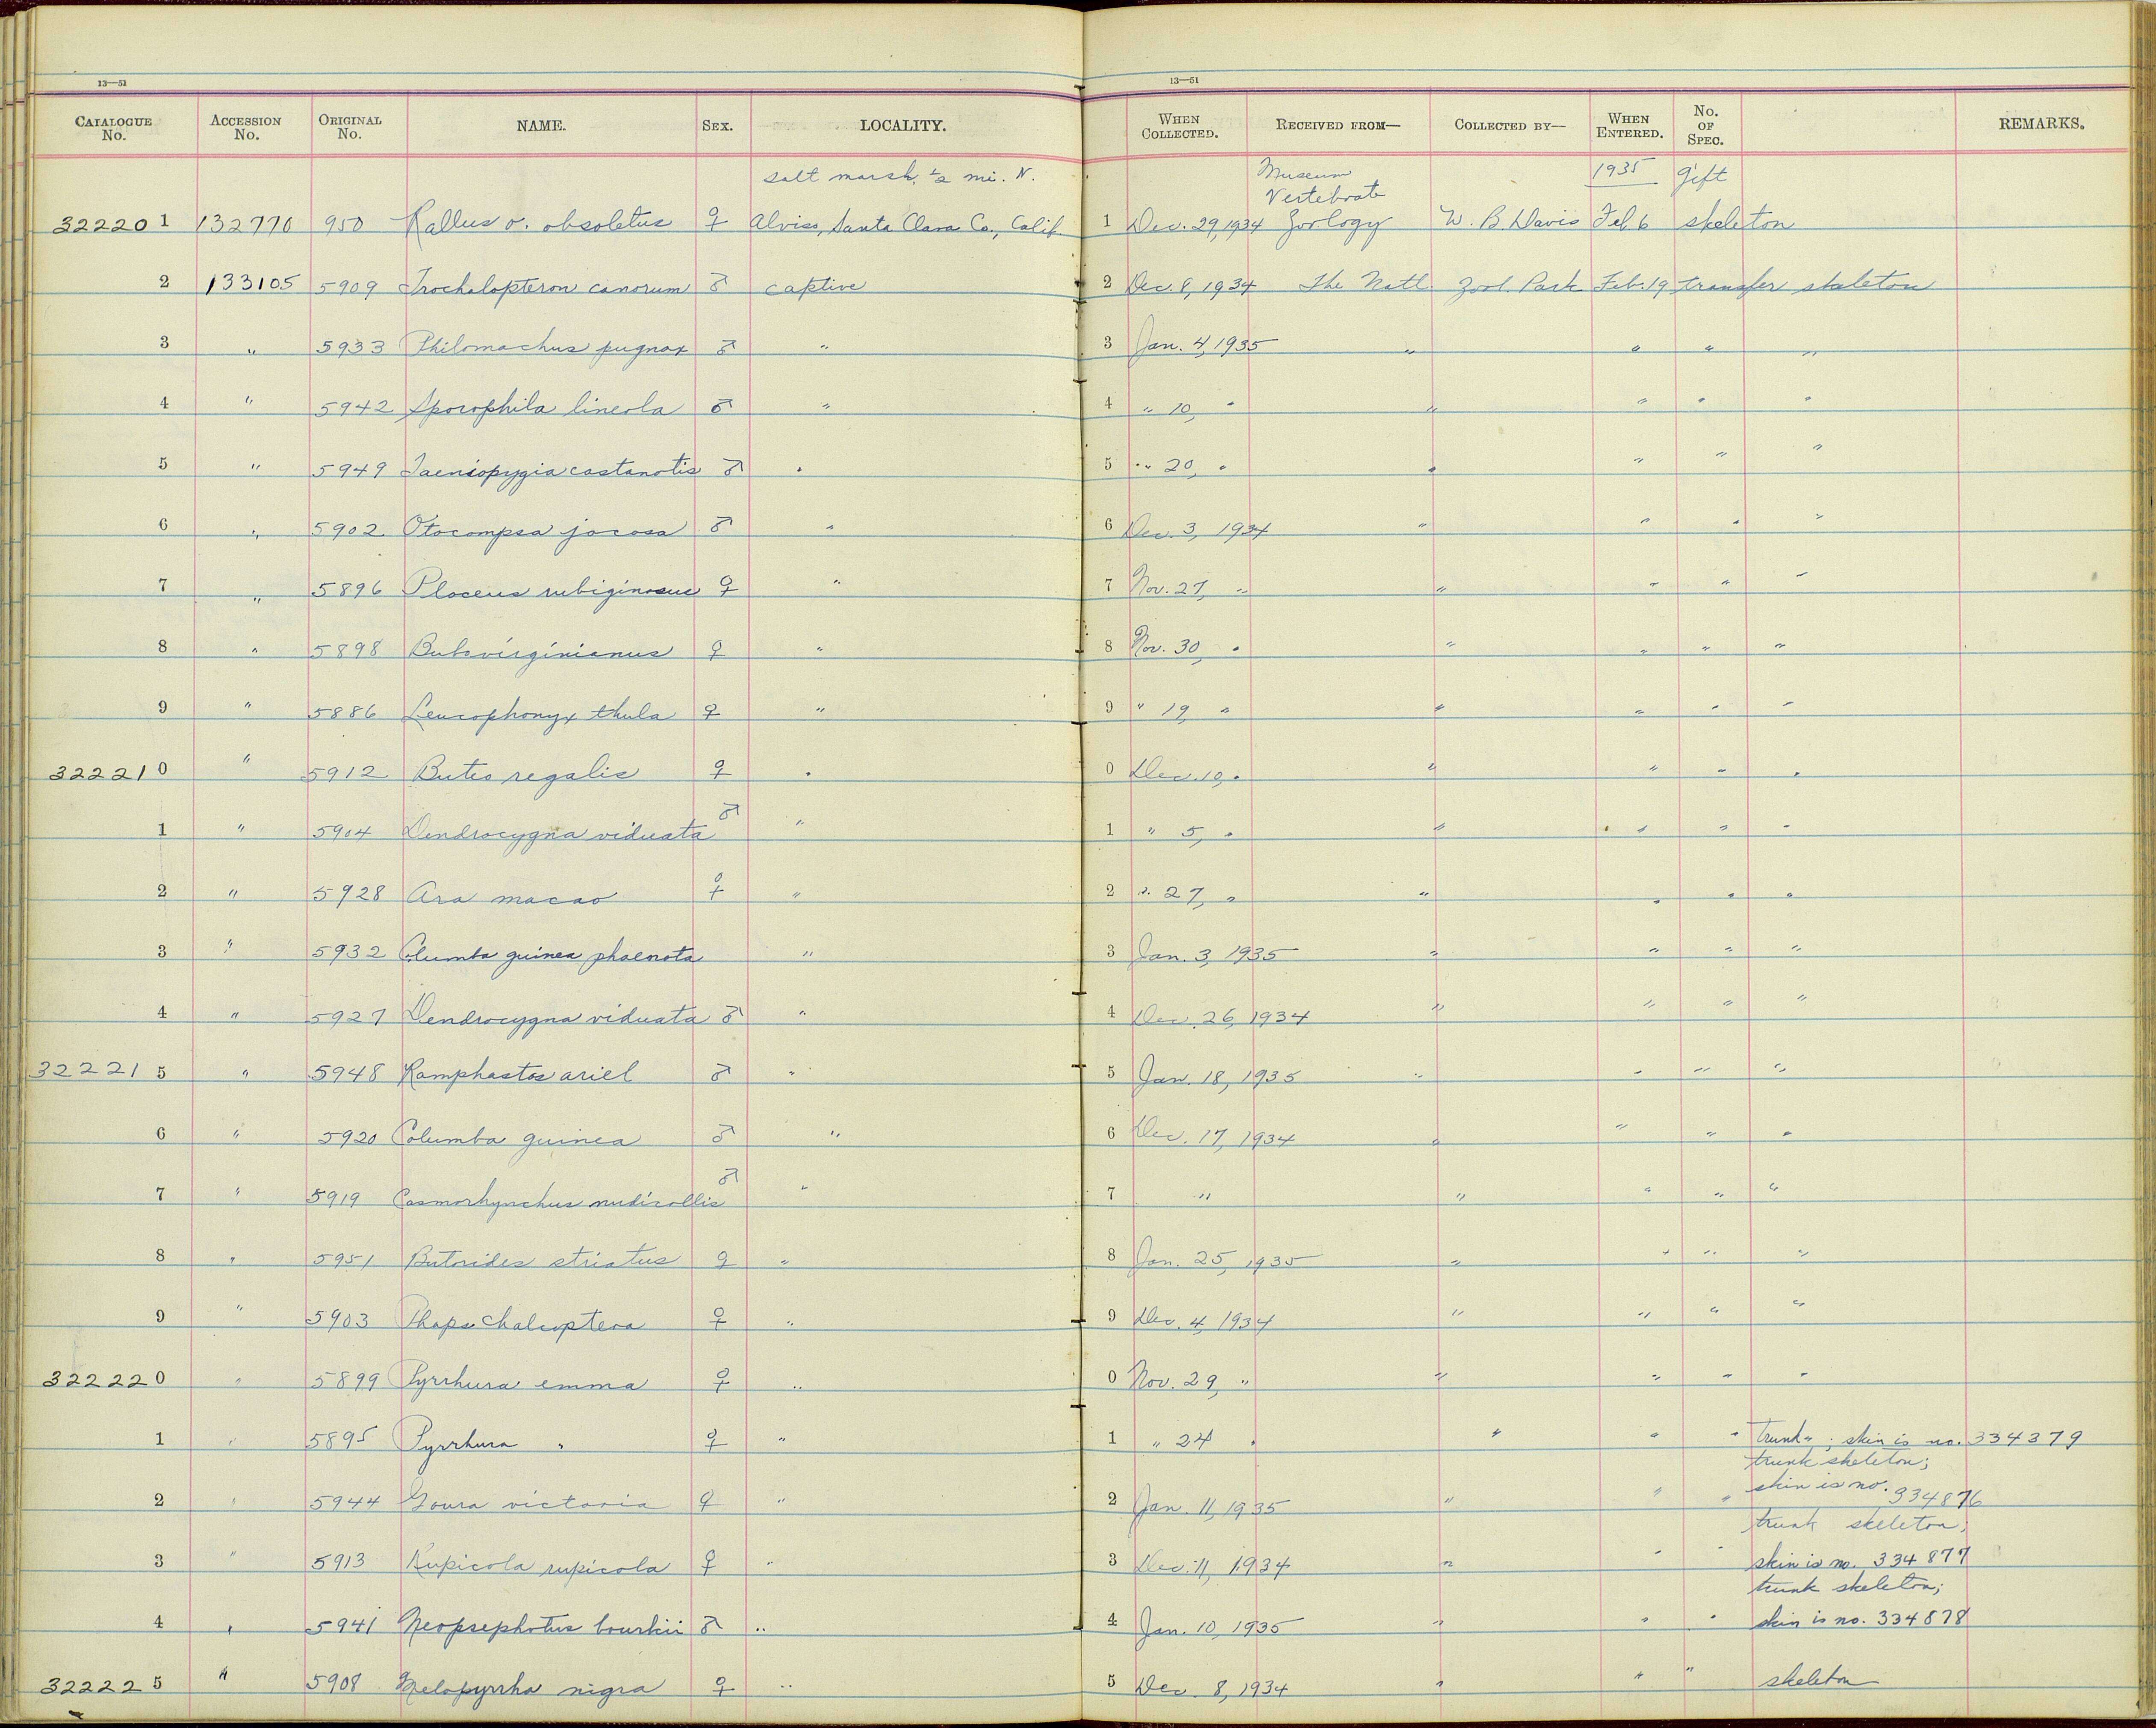 13—51
13—51
CATALOGUE No. ACCESSION No. ORIGINAL No. NAME. SEX. LOCALITY. WHEN COLLECTED. RECEIVED FROM— COLLECTED BY— WHEN ENTERED. No. OF SPEC. REMARKS.
salt marsh, ½ mi. N. Museum Vertebrate 1935 gift
322201 132770 950 Rallus o. obsoletus ♀ Alviso, Santa Clara Co., Calif. 1 Dec. 29, 1934 Zoology W. B. Davis Feb 6 skeleton
2 133105 5909 Trochalopteron canorum ♂ captive 2 Dec. 8, 1934 The Natl. Zool. Park Feb. 19 transfer skeleton
3 " 5933 Philomachus pugnax ♂ " 3 Jan. 4, 1935 " " " "
4 " 5942 Sporophila lineola ♂ " 4 " 10, " " " " "
5 " 5949 Taeniopygia castanotis ♂ " 5 " 20, " " " " "
6 " 5902 Otocompsa jocosa ♂ " 6 Dec. 3, 1934 " " " "
7 " 5896 Ploceus rubiginosus ♀ " 7 Nov. 27, " " " " "
8 " 5898 Bubo virginianus ♀ " 8 Nov. 30, " " " " "
9 " 5886 Leucophonyx thula ♀ " 9 " 19, " " " " "
322210 " 5912 Buteo regalis ♀ " 0 Dec. 10, " " " " "
1 " 5904 Dendrocygna viduata ♂ " 1 " 5, " " " " "
2 " 5928 Ara macao ♀ " 2 " 27, " " " " "
3 " 5932 Columba guinea phaenota " 3 Jan. 3, 1935 " " " "
4 " 5927 Dendrocygna viduata ♂ " 4 Dec. 26, 1934 " " " "
322215 " 5948 Ramphastos ariel ♂ " 5 Jan. 18, 1935 " " " "
6 " 5920 Columba guinea ♂ " 6 Dec. 17, 1934 " " " "
7 " 5919 Casmorhynchus nudicollis ♂ " 7 " " " " "
8 " 5951 Butorides striatus ♀ " 8 Jan. 25, 1935 " " " "
9 " 5903 Phaps chalcoptera ♀ " 9 Dec. 4, 1934 " " " "
322220 " 5899 Pyrrhura emma ♀ " 0 Nov. 29, " " " " "
1 " 5895 Pyrrhura " ♀ " 1 " 24 " " " " trunk " ; skin is no. 334379
trunk skeleton;
2 " 5944 Goura victoria ♀ " 2 Jan. 11, 1935 " " " skin is no. 334876
trunk skeleton;
3 " 5913 Rupicola rupicola ♀ " 3 Dec. 11, 1934 " " " skin is no. 334877
trunk skeleton;
4 " 5941 Neopsephotus bourkii ♂ " 4 Jan. 10, 1935 " " " skin is no. 334878
322225 " 5908 Melopyrrha nigra ♀ " 5 Dec. 8, 1934 " " " skeleton